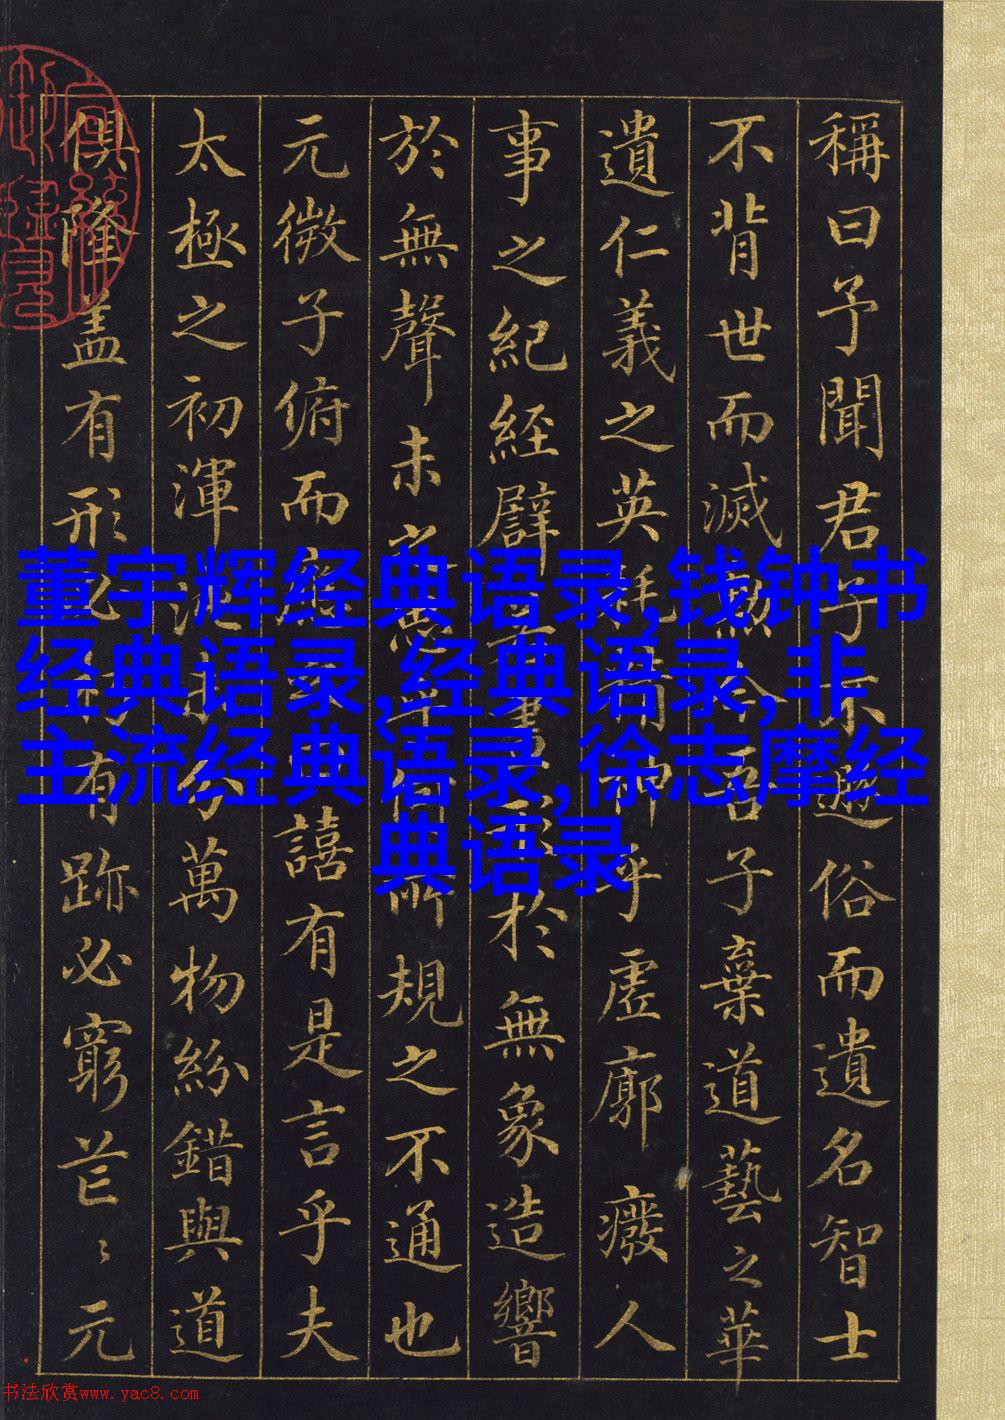 稱曰予聞君子不遯俗而遺名智士
不背世而滅勳今吾子棄道藝之華
遺仁義之英耗精神乎虛廓廢人
事之紀經譬於無象造響
於無聲未思乎何所規之不通也
元微子俯而譆有是言乎夫
太極之初渾沌未分萬物紛錯與道
俱隆盖有形必朽有跡必窮芒〻元
董宇辉经典语录,钱钟书
经典语录,经典语录,非
主流经典语录,徐志摩经
典语录
书法欣赏www.yac8.com